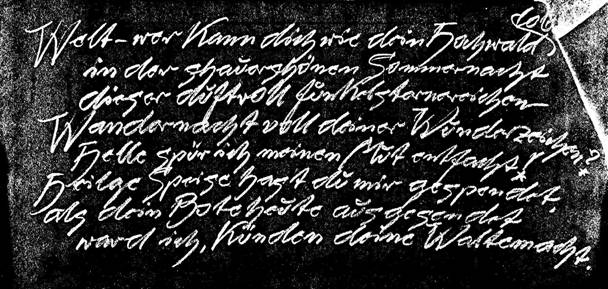 Welt – wer kann dich wie dein Hochwald
in der schauerschönen Sommernacht
dieser duftvoll funkelsternereichen
Wandernacht voll deiner Wunderzeichen?
Helle spür ich meinen Mut entfacht!
Heilge Speise hast du mir gespendet,
als dein Bote heute ausgesendet
ward ich, Künden deine Waltemacht.